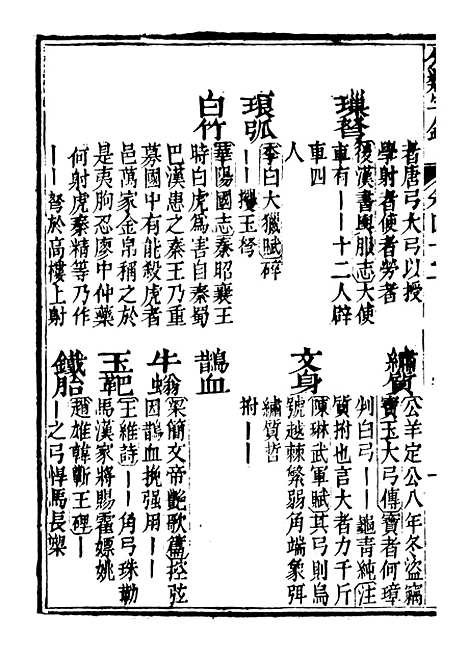 分類字錦 卷四十二
者唐弓大弓以授
學射者使者勞者
璅弩 後漢書輿服志大使
車有——十二人辟
車四
人
琅弧 李白大獵賦碎
——攫玉弩
白竹 華陽國志秦昭襄王
時白虎為害自秦蜀
巴漢患之秦王乃重
募國中有能殺虎者
邑萬家金帛稱之於
是夷朐忍廖中仲藥
何射虎秦精等乃作
——弩於高樓上射
繡質 公羊定公八年冬盜竊
寶玉大弓傳寶者何璋
判白弓——龜青純注
質拊也言大者力千斤
文身 陳琳武軍賦其弓則烏
號越棘繁弱角端象弭
繡質哲
拊——
鵲血
牛螉 梁簡文帝艷歌篇控弦
因鵲血挽强用——
玉靶 王維詩——角弓珠勒
馬漢家將賜霍嫖姚
鐵胎 趙雄韓蘄王碑——
——之弓悍馬長槊